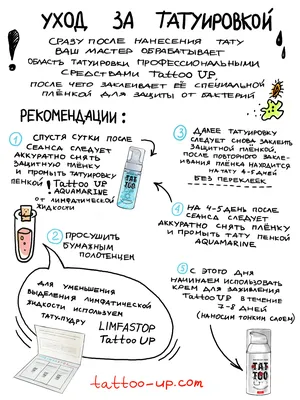 УХОД ЗА ТАТУИРОВКОЙ!
СРАЗУ ПОСЛЕ НАНЕСЕНИЯ ТАТУ
ВАШ МАСТЕР ОБРАБАТЫВАЕТ
ОБЛАСТЬ ТАТУИРОВКИ ПРОФЕССИОНАЛЬНЫМИ
СРЕДСТВАМИ Tattoo UP,
ПОСЛЕ ЧЕГО ЗАКЛЕИВАЕТ ЕЁ СПЕЦИАЛЬНОЙ
ПЛЁНКОЙ ДЛЯ ЗАЩИТЫ ОТ БАКТЕРИЙ
РЕКОМЕНДАЦИИ:
1 СПУСТЯ СУТКИ ПОСЛЕ
СЕАНСА СЛЕДУЕТ
АККУРАТНО СНЯТЬ
ЗАЩИТНУЮ ПЛЁНКУ
И ПРОМЫТЬ ТАТУИРОВКУ
ПЕНКОЙ! Tattoo UP
AQUAMARINE
ОТ ЛИМФАТИЧЕСКОЙ
ЖИДКОСТИ
TAT
TOO
2 ПРОСУШИТЬ
БУМАЖНЫМ
ПОЛОТЕНЦЕМ
ДЛЯ УМЕНЬШЕНИЯ
ВЫДЕЛЕНИЯ ЛИМФАТИЧЕСКОЙ
ЖИДКОСТИ ИСПОЛЬЗУЕМ
ТАТУ-ПУДРУ
LIMFASTOP
Tattoo UP
3 ДАЛЕЕ ТАТУИРОВКУ
СЛЕДУЕТ СНОВА ЗАКЛЕИТЬ
ЗАЩИТНОЙ ПЛЁНКОЙ,
ПОСЛЕ ПОВТОРНОГО ЗАКЛЕ-
ИВАНИЯ ПЛЁНКА НАХОДИТСЯ
НА ТАТУ 4-5 ДНЕЙ
БЕЗ ПЕРЕКЛЕЕК
4 НА 4-5 ДЕНЬ ПОСЛЕ
СЕАНСА СЛЕДУЕТ
АККУРАТНО СНЯТЬ ПЛЁНКУ
И ПРОМЫТЬ ТАТУ ПЕНКОЙ
AQUAMARINE.
5 С ЭТОГО ДНЯ
НАЧИНАЕМ ИСПОЛЬЗОВАТЬ
КРЕМ ДЛЯ ЗАЖИВЛЕНИЯ
Tattoo UP В ТЕЧЕНИЕ
7-8 ДНЕЙ
(НАНОСИМ ТОНКИМ СЛОЕМ)
TAT
TOO
tattoo-up.com